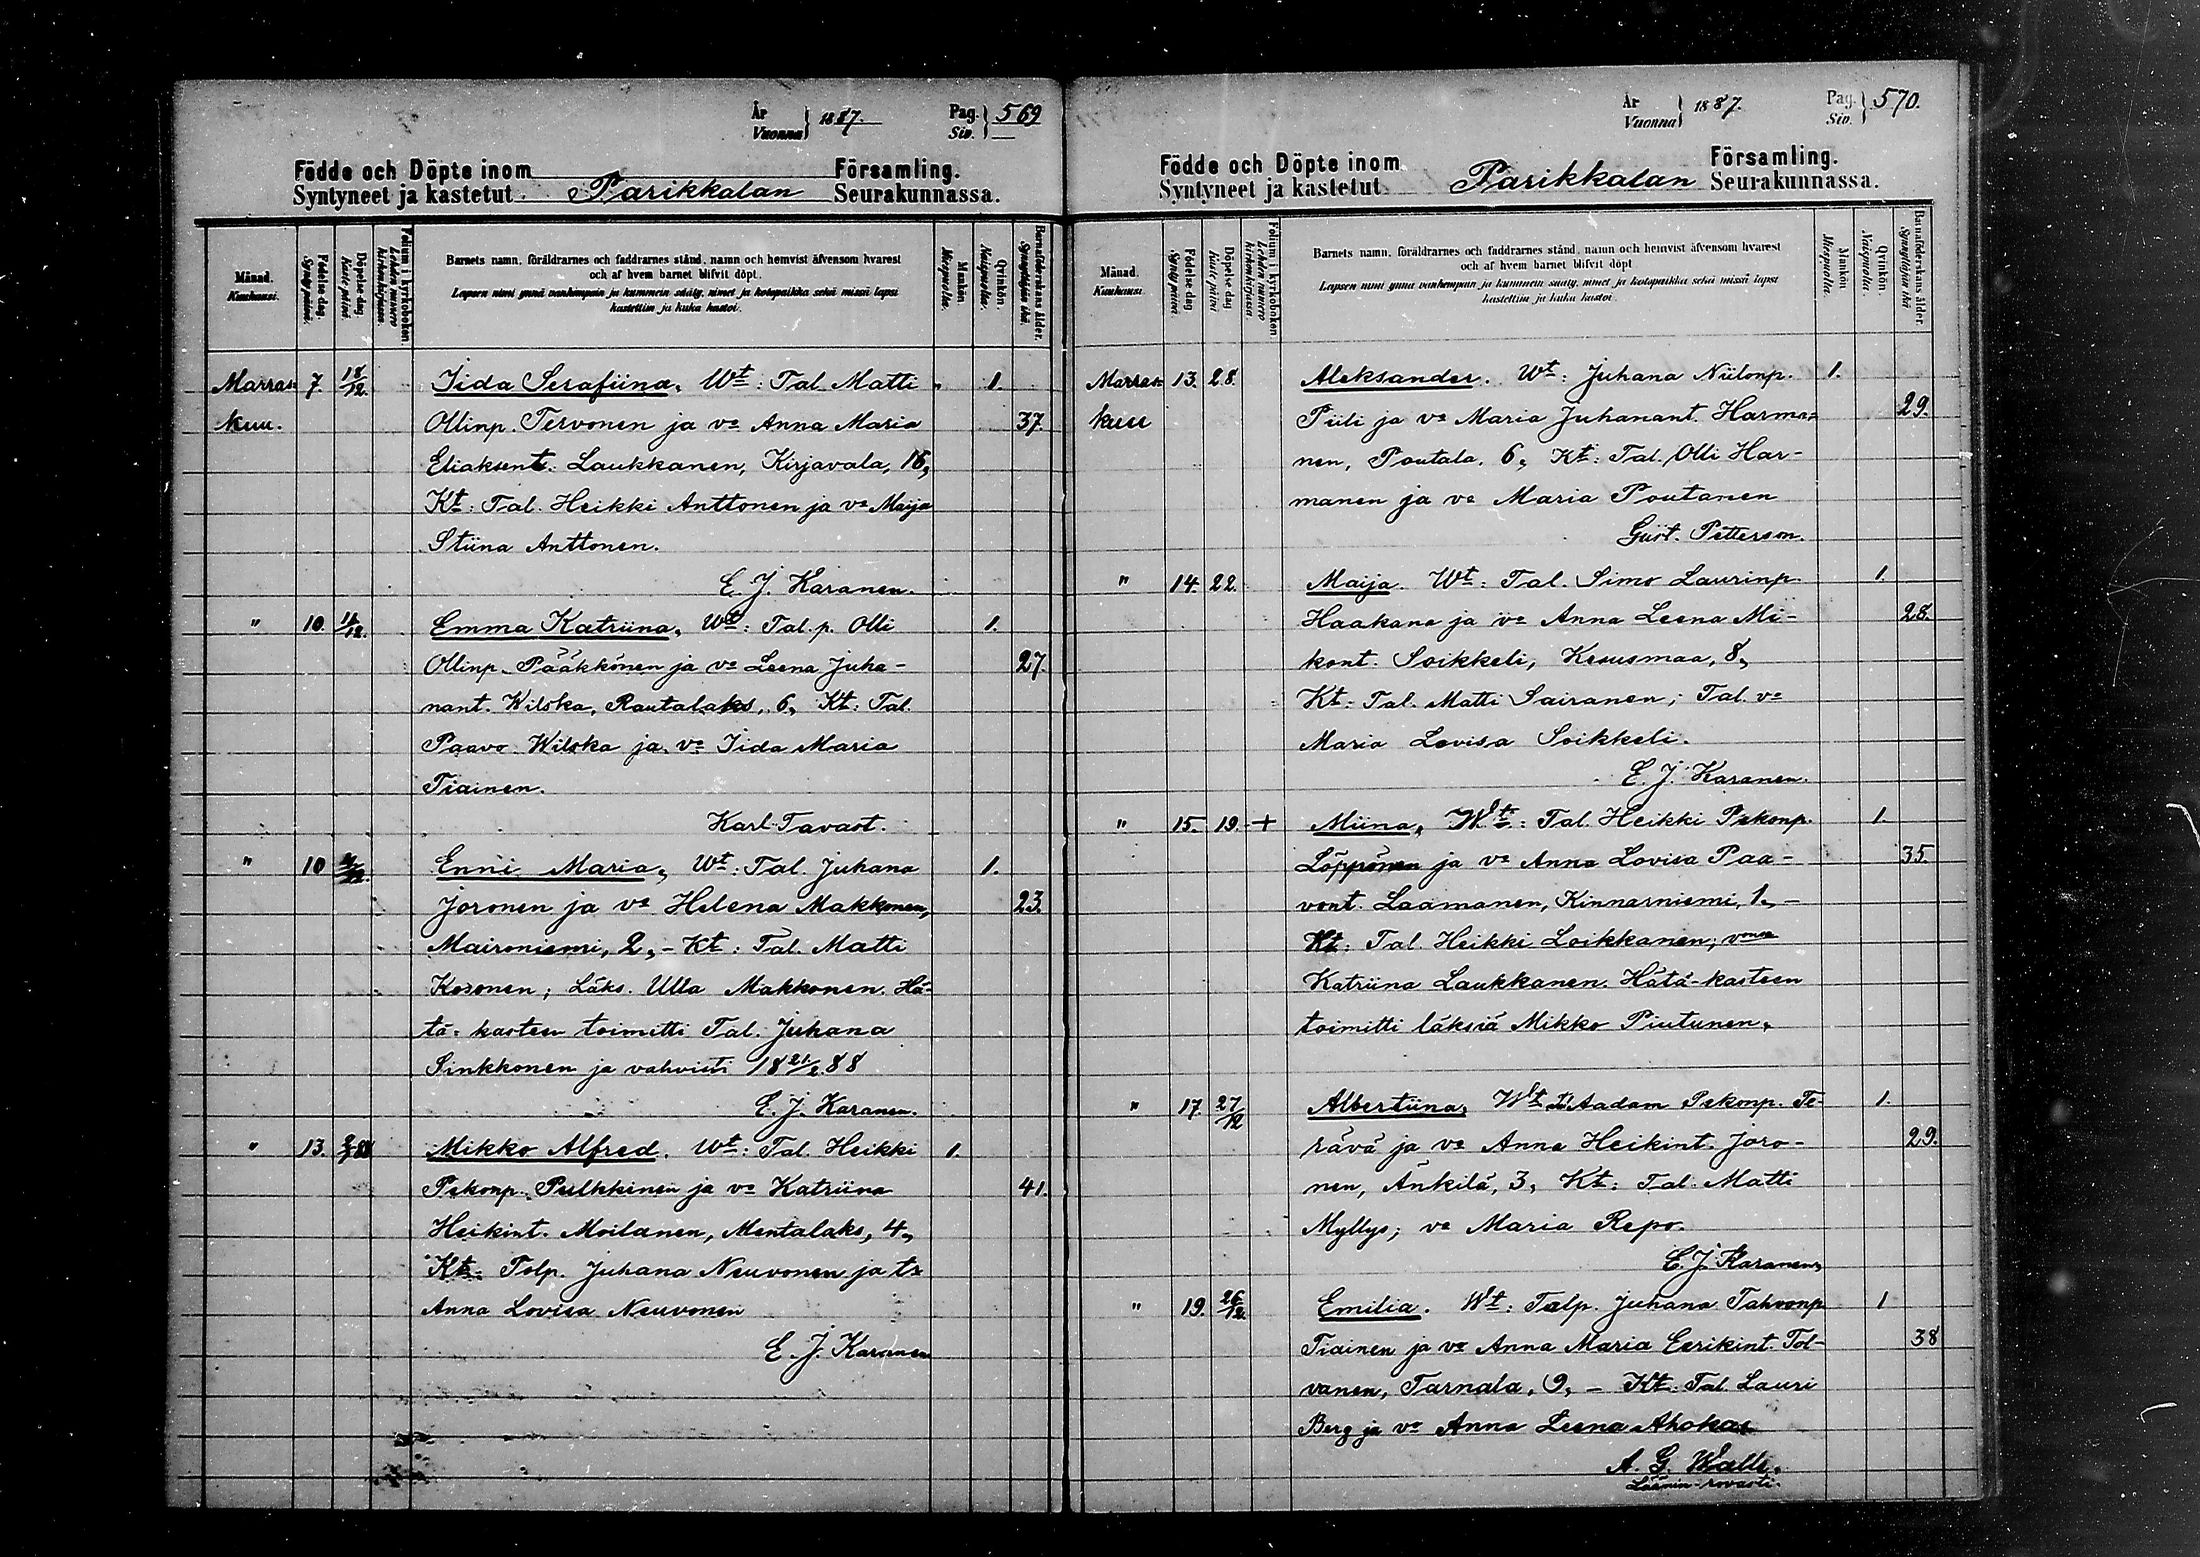 År
Vuonna } 1887.
Pag.
Siv. } 569
Födde och Döpte inom Församling.
Syntyneet ja kastetut Parikkalan Seurakunnassa.
Månad.
Kuukausi.
Födelse dag.
Syntymäpäivä.
Döpelse dag.
Kaste päivä.
Folium i kyrkoboken.
Lehden numero kirkonkirjassa.
Barnets namn, föräldrarnes och faddrarnes stånd, namn och hemvist äfvensom hvarest
och af hvem barnet blifvit döpt.
Lapsen nimi ynnä vanhempain ja kummein sääty, nimet ja kotopaikka sekä missä lapsi
kastettiin ja kuka kastoi.
Mankön.
Miespuolia.
Qvinkön.
Naispuolia.
Barnaföderskans ålder.
Synnyttäjän ikä.
Marras- 7. 18/12. Iida Serafiina, Wt: Tal. Matti 1.
kuu. Ollinp. Tervonen ja vo Anna Maria 37.
Eliaksent. Laukkanen, Kirjavala, 16,
Kt: Tal. Heikki Anttonen ja vo Maija
Stiina Anttonen.
E. J. Karanen.
" 10. Emma Katriina, Wt: Tal. p. Olli 1.
Ollinp. Pääkkönen ja vo Leena Juha- 27.
nant. Wilska, Rautalaks, 6, Kt: Tal.
Paavo Wilska ja vo Iida Maria
Tiainen.
Karl Tavast.
" 10 Enni Maria, Wt: Tal. Juhana 1.
Joronen ja vo Helena Makkonen, 23.
Maironiemi, 2, - Kt: Tal. Matti
Kosonen; Läks. Ulla Makkonen. Hä-
tä-kasteen toimitti Tal. Juhana
Sinkkonen ja vahvisti 18 21/2 88
E. J. Karanen.
" 13. Mikko Alfred. Wt: Tal. Heikki 1.
Pekonp. Pulkkinen ja vo Katriina 41.
Heikint. Moilanen, Mentalaks, 4,
Kt: Tolp. Juhana Neuvonen ja tr
Anna Lovisa Neuvonen
E. J. Karanen
År
Vuonna } 1887.
Pag.
Siv. } 570.
Födde och Döpte inom Församling.
Syntyneet ja kastetut Parikkalan Seurakunnassa.
Månad.
Kuukausi.
Födelse dag.
Syntymäpäivä.
Döpelse dag.
Kaste päivä.
Folium i kyrkoboken
Lehden numero kirkonkirjassa
Barnets namn, föräldrarnes och faddrarnes stånd, namn och hemvist äfvensom hvarest
och af hvem barnet blifvit döpt
Lapsen nimi ynnä vanhempain ja kummein sääty, nimet ja kotopaikka sekä missä lapsi
kastettiin ja kuka kastoi.
Mankön
Miespuolia.
Qvinkön.
Naispuolia.
Barnaföderskans ålder.
Synnyttäjän ikä
Marras- 13. 28. Aleksander. Wt: Juhana Niilonp. 1.
kuu Piili ja vo Maria Juhanant. Harma- 29.
nen, Poutala, 6, Kt: Tal. Olli Har-
manen ja vo Maria Poutanen
Gust. Petterson.
" 14. 22. Maija. Wt: Tal. Simo Laurinp. 1.
Haakana ja vo Anna Leena Mi- 28.
kont. Soikkeli, Kesusmaa, 8,
Kt: Tal. Matti Sairanen; Tal. vo
Maria Lovisa Soikkeli.
E. J. Karanen.
" 15. 19. + Miina, Wt: Tal. Heikki Pekonp. 1.
Löppönen ja vo Anna Lovisa Paa- 35.
vont. Laamanen, Kinnarniemi, 1, -
Kt: Tal. Heikki Loikkanen; vmon
Katriina Laukkanen. Hätä-kasteen
toimitti läksiä Mikko Piutunen.
" 17. 27/12 Albertiina, Wt Aadam Pekonp. Te- 1.
rävä ja vo Anna Heikint. Joro- 29.
nen, Änkilä, 3, Kt: Tal. Matti
Myllys; vo Maria Repo.
E. J. Karanen
" 19. 26/12 Emilia. Wt: Talp. Juhana Tahvonp 1
Tiainen ja vo Anna Maria Eerikint. Tol- 38
vanen, Tarnala, 9, - Kt: Tal. Lauri
Berg ja vo Anna Leena Ahokas
A. G. Walle.
Läänin-rovasti.